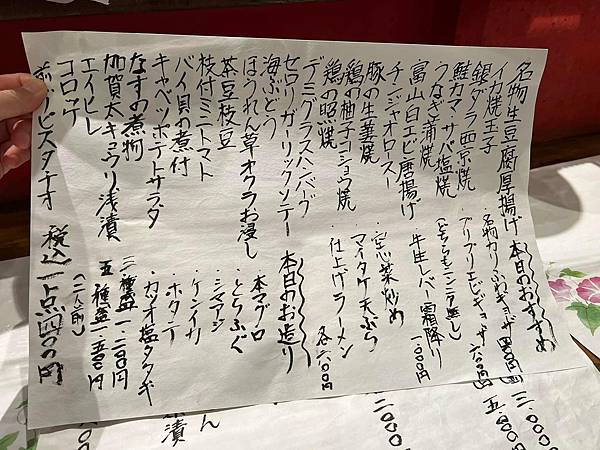 名物生豆腐厚揚げ
イカ焼玉子
銀ダラ西京焼
鮭カマ・サバ塩焼
うなぎ蒲焼
富山白エビ唐揚げ
チンジャオロースー
豚の生姜焼
鶏の柚子コショウ焼
鶏の照焼
デミグラスハンバーグ
セロリガーリックソテー
海ぶどう
ほうれん草オクラお浸し
茶豆枝豆
枝付ミニトマト
バイ貝の煮付
キャベツポテトサラダ
なすの煮物
加賀太キュウリ浅漬
エイヒレ
コロッケ
煎りピスタチオ
税込一点四〇〇円
本日のおすすめ
・名物カリふわギョーザ
・プリプリエビギョーザ 六〇〇円
(どちらもニンニク無し)
・牛生レバー霜降り
一〇〇〇円
・空心菜炒め
・マイタケ天ぷら
・仕上げラーメン
各六〇〇円
本日のお造り
・本マグロ
・とらふぐ
・シマアジ
・ケンサキイカ
・ホタテ
・カツオ塩タタキ
三種盛一二〇〇円
五種盛一五〇〇円
(一人前)